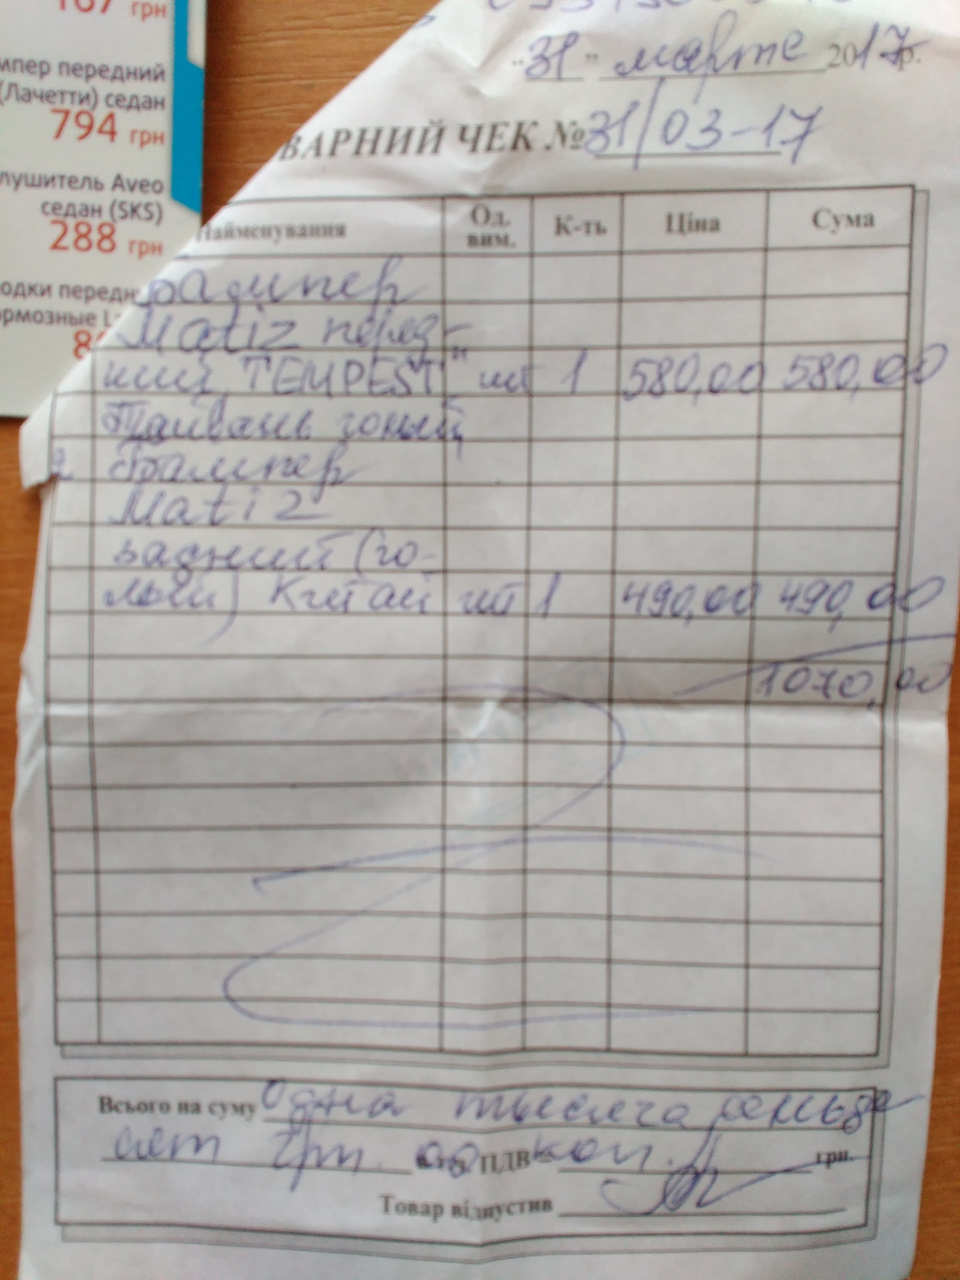 167 грн
мпер передний
(Лачетти) седан
794 грн
лушитель Aveo
седан (SKS)
288 грн
одки передн
ормозные L
8
"31" марте 2017р.
ВАРНИЙ ЧЕК № 31/03-17
Найменування Од. вим. К-ть Ціна Сума
Бампер
Matiz перед-
ний "TEMPEST" шт 1 580,00 580,00
Тайвань голый
2 Бампер
Matiz
задний (го-
лый) Китай шт 1 490,00 490,00
1070,00
Всього на суму Одна тысяча семьде
сят грн. 00 коп. ПДВ грн.
Товар відпустив